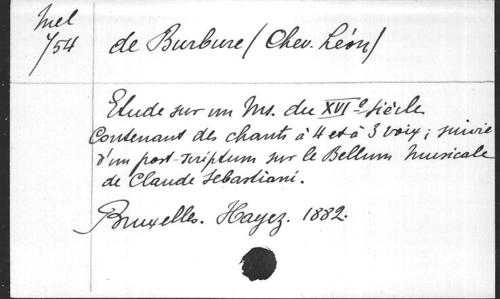 Mel
1/54
de Burbure (Chev. Léon)
Etude sur un Ms. du XVIe siècle
Contenant des chants à 4 et à 3 voix ; suivie
d'un post-scriptum sur le Bellum Musicale
de Claude Sebastiani.
Bruxelles. Hayez. 1882.